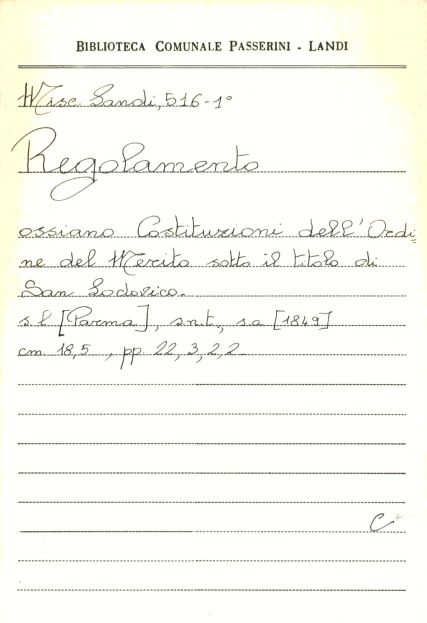 BIBLIOTECA COMUNALE PASSERINI - LANDI
Misc. Landi, 516-1°
Regolamento
ossiano Costituzioni dell'Ordi=
ne del Merito sotto il titolo di
San Lodovico.
s.l [Parma], s.n.t., s.a [1849]
cm. 18,5 , pp. 22, 3, 2, 2
C